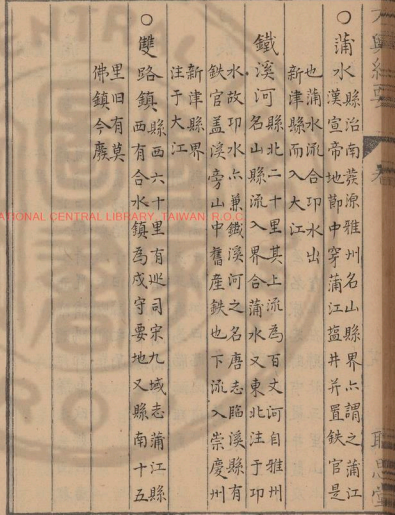 ○蒲水縣治南發源雅州名山縣界亦謂之蒲江
漢宣帝地節中穿蒲江塩井并置鉄官是
也蒲水流合邛水出
新津縣而入大江
鐵溪河縣北二十里其上流為百丈河自雅州
名山縣流入界合蒲水又東北注于邛
水故邛水亦兼鐵溪河之名唐志臨溪縣有
鉄官蓋溪旁山中舊産鉄也下流入崇慶州
新津縣界
注于大江
○雙路鎮縣西六十里有巡司宋九域志蒲江縣
縣西有合水鎮為戍守要地又縣南十五
里旧有莫
佛鎮今廢
ATIONAL CENTRAL LIBRARY, TAIWAN, R.O.C